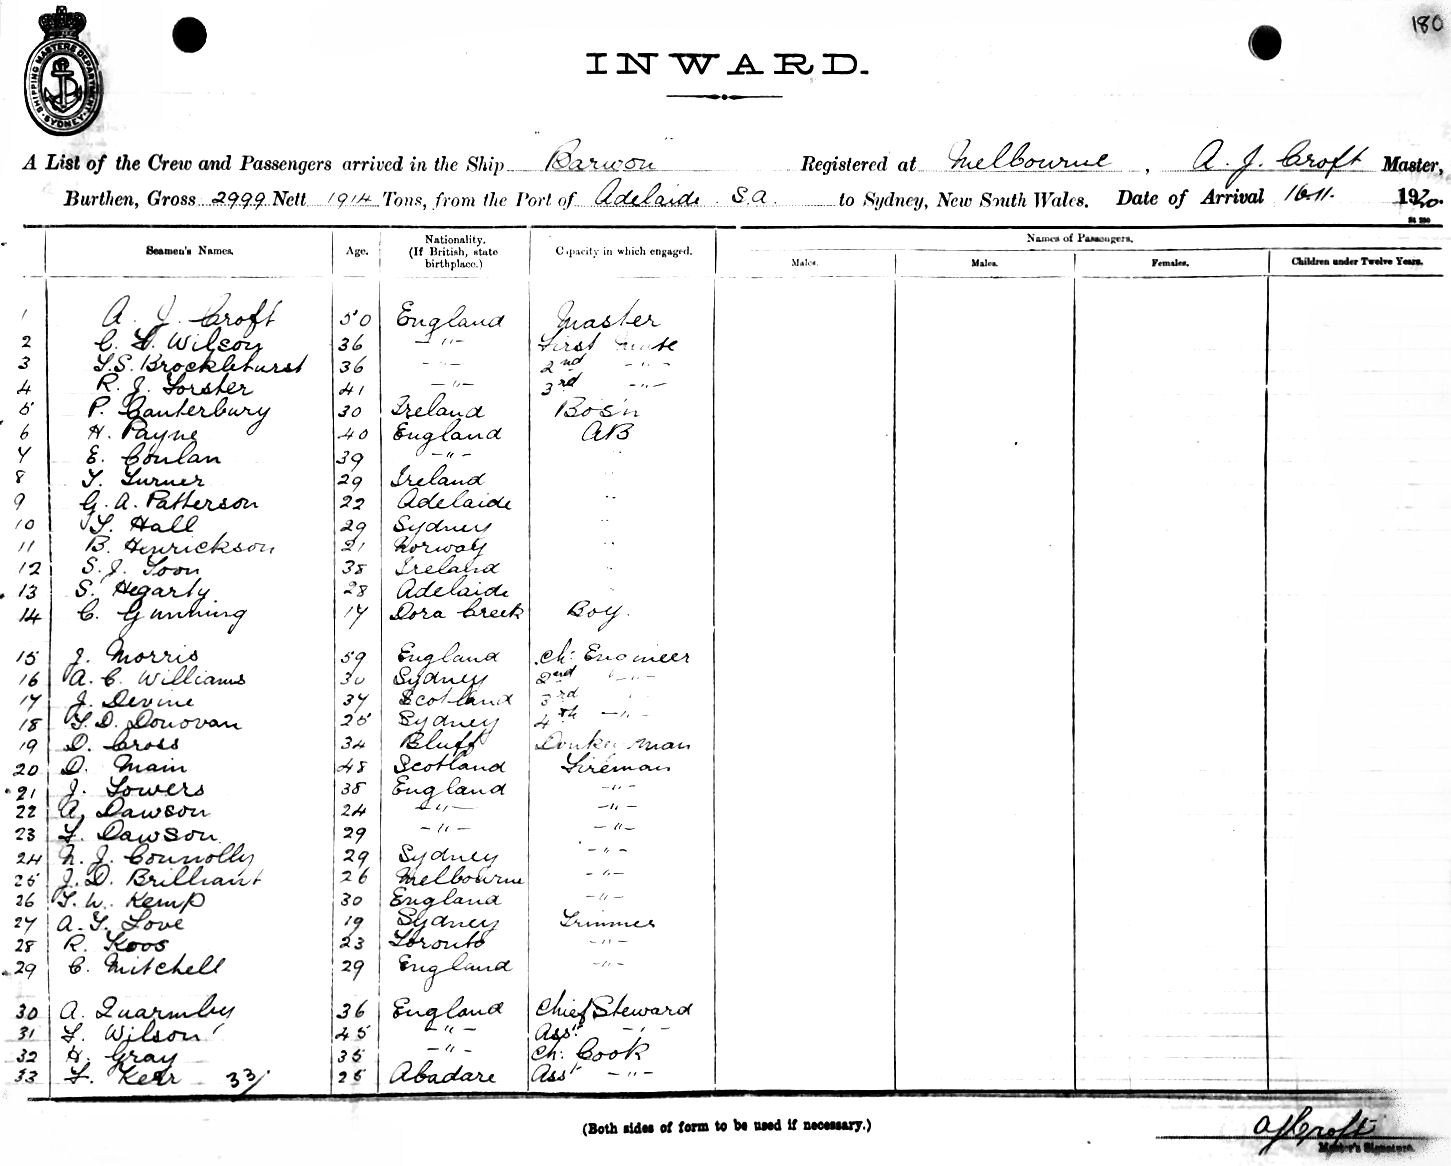 180
SHIPPING MASTERS DEPARTMENT SYDNEY
INWARD.
A List of the Crew and Passengers arrived in the Ship "Barwon" Registered at Melbourne, A. J. Croft Master,
Burthen, Gross 2999 Nett 1914 Tons, from the Port of Adelaide S.A. to Sydney, New South Wales. Date of Arrival 16.11. 1920.
Names of Passengers.
Seamen's Names. Age. Nationality. (If British, state birthplace.) Capacity in which engaged. Males. Males. Females. Children under Twelve Years.
1 A. J. Croft 50 England Master
2 C. Wilson 36 -"- First Mate
3 Brocklehurst 36 -"- 2nd -"-
4 R. J. Forster 41 -"- 3rd -"-
5 P. Canterbury 30 Ireland Bos'n
6 H. Payne 40 England AB
7 E. Conlan 39 -"- "
8 T. Turner 29 Ireland "
9 G. A. Patterson 22 Adelaide "
10 Hall 29 Sydney "
11 B. Henrickson 21 Norway "
12 S. J. Toon 38 Ireland "
13 S. Hegarty 28 Adelaide "
14 C. Gunning 17 Dora Creek Boy.
15 J. Morris 59 England Ch: Engineer
16 A. C. Williams 30 Sydney 2nd -"-
17 J. Devine 37 Scotland 3rd "
18 D. Donovan 25 Sydney 4th -"-
19 D. Cross 34 Bluff Donkeyman
20 D. Main 48 Scotland Fireman
21 J. Towers 38 England -"-
22 A. Dawson 24 -"- -"-
23 Dawson 29 -"- -"-
24 J. Connolly 29 Sydney -"-
25 J. D. Brilliant 26 Melbourne -"-
26 W. Kemp 30 England -"-
27 A. Love 19 Sydney Trimmer
28 R. Koos 23 Toronto -"-
29 C. Mitchell 29 England -"-
30 A. Quarmby 36 England Chief Steward
31 Wilson 45 -"- Asst -"-
32 H. Gray 35 -"- Ch: Cook
33 Kerr 33/ 25 Abadare Asst -"-
(Both sides of form to be used if necessary.)
A J Croft
Master's Signature.